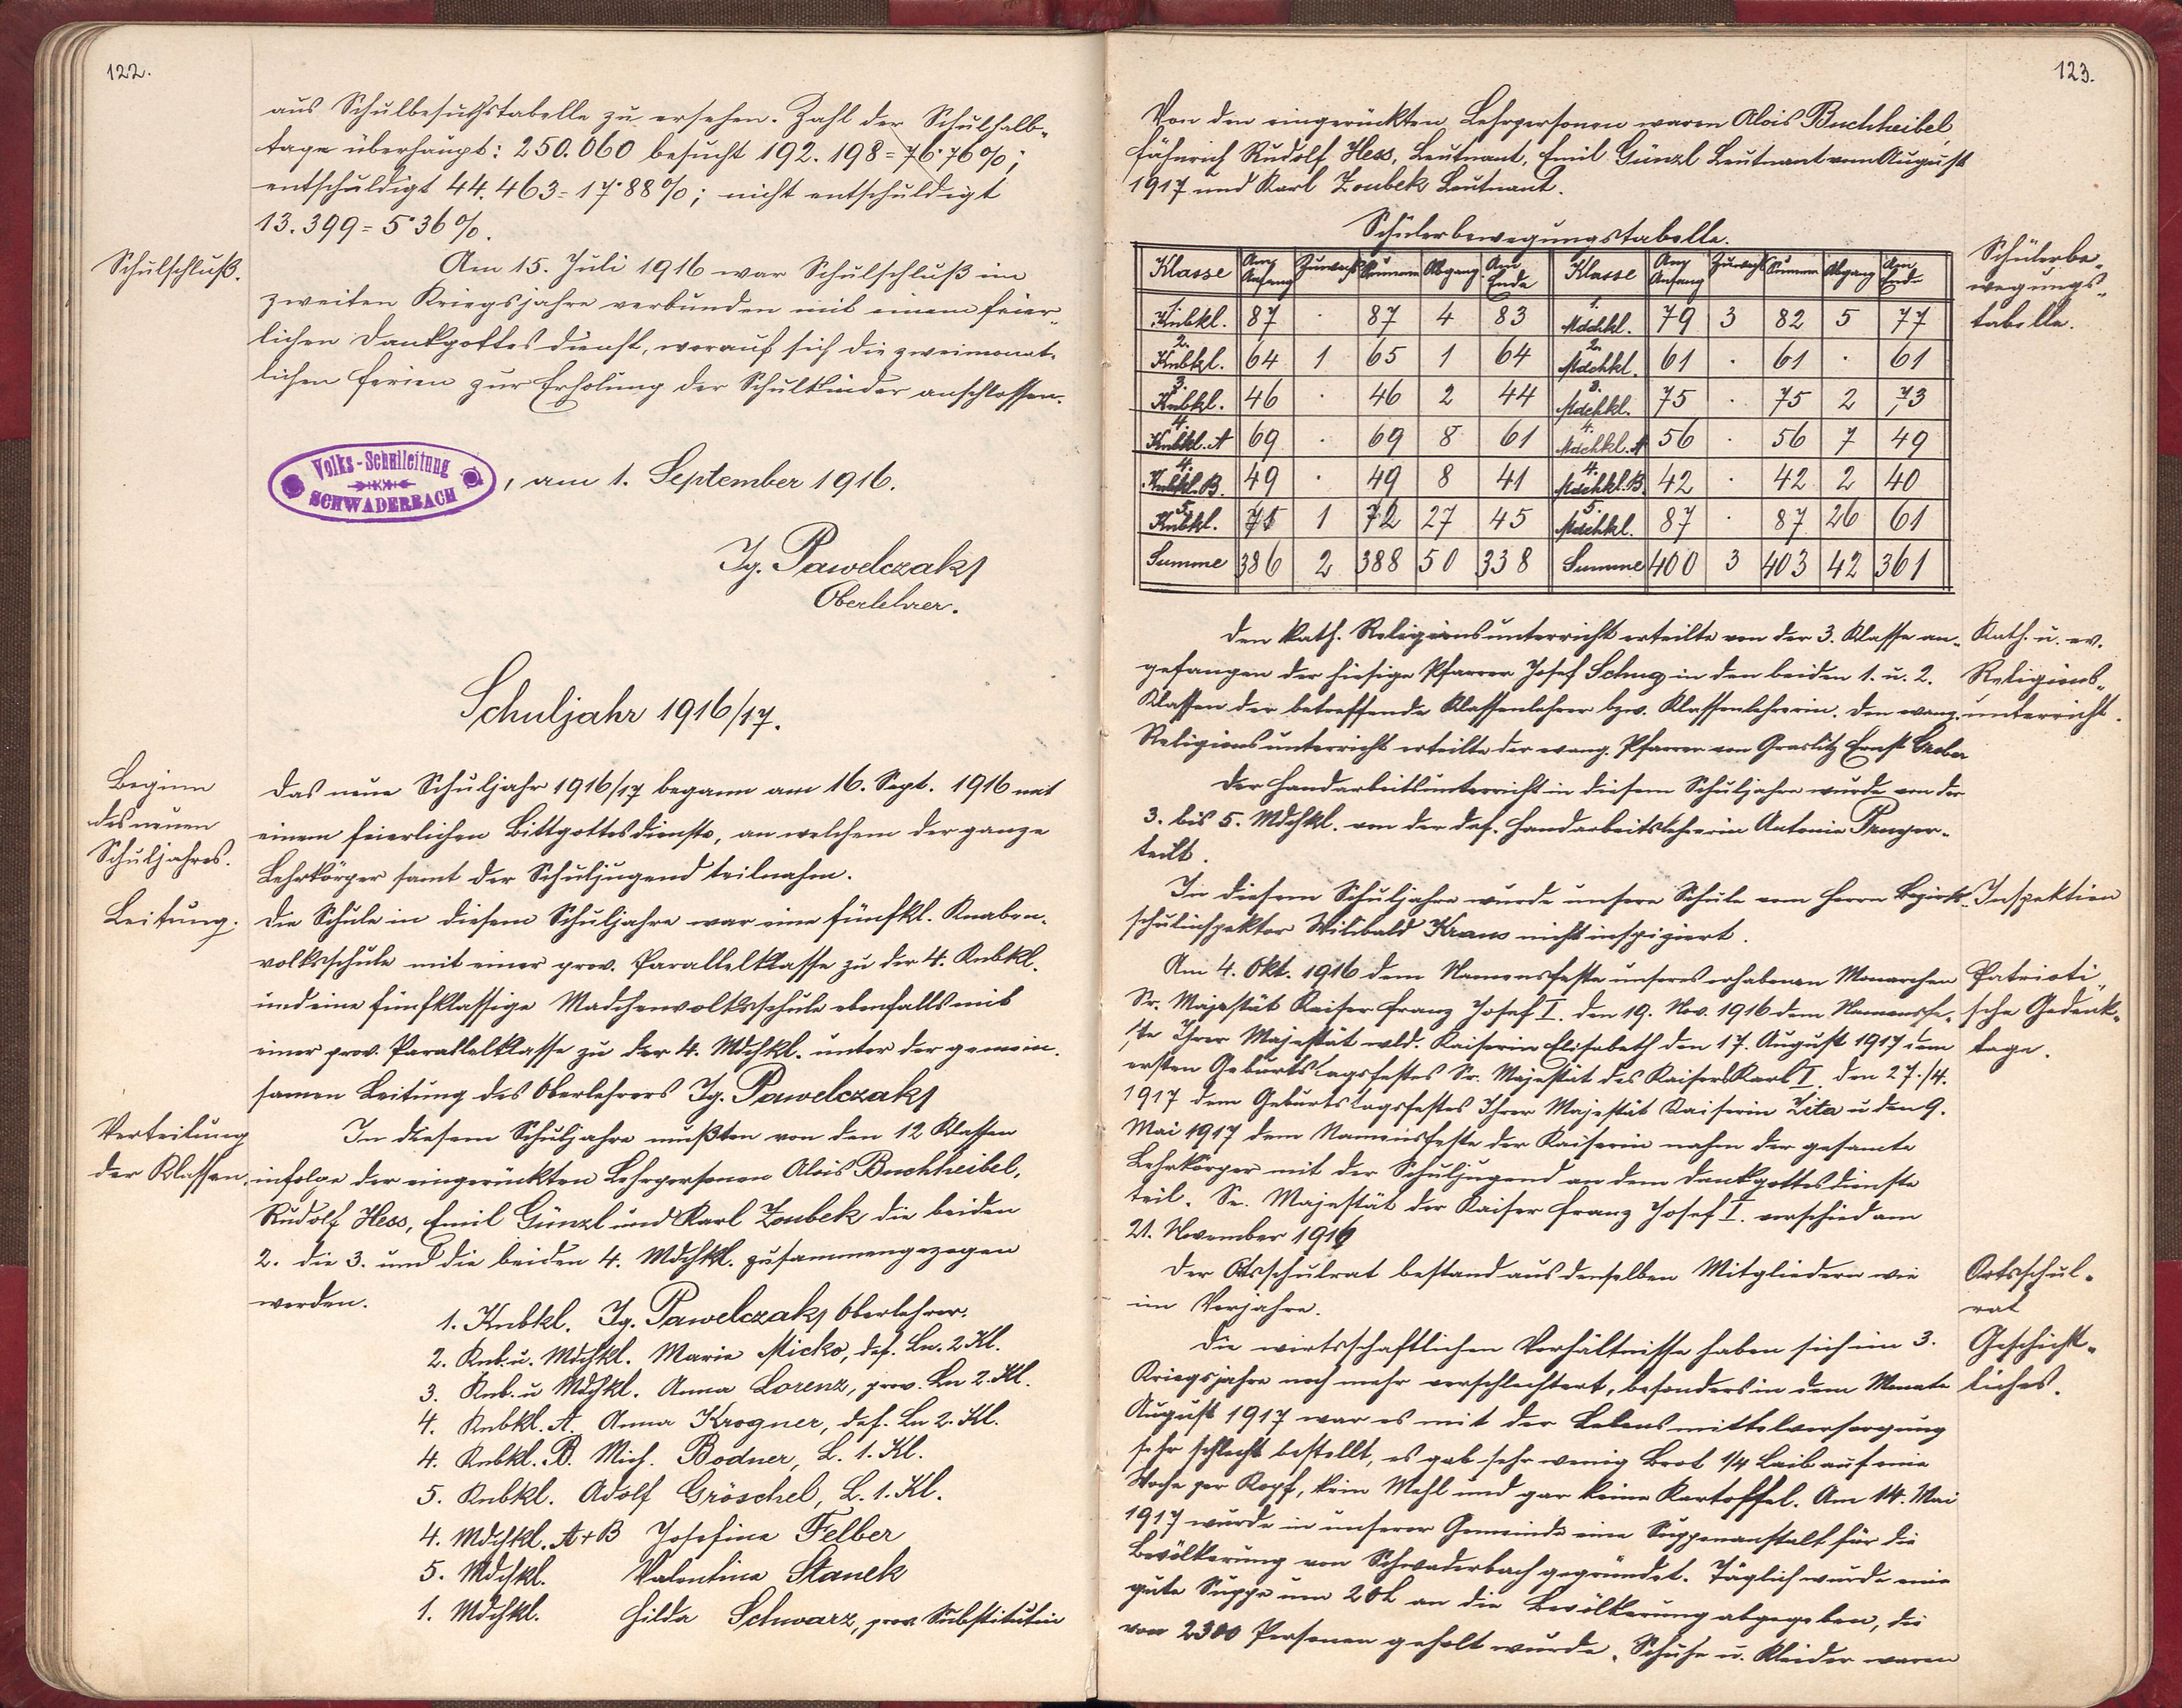 122.
aus Schulbesuchstabelle zu ersehen. Zahl der Schulhalb-
tage überhaupt: 250.060 besucht 192.198 = 76·76%;
entschuldigt 44.463 = 17·88%; nicht entschuldigt
13.399 = 5·36%.
Schulschluß.
Am 15. Juli 1916 war Schulschluß im
zweiten Kriegsjahre verbunden mit einem feier-
lichen Dankgottesdienst, worauf sich die zweimonat-
lichen Ferien zur Erholung der Schulkinder anschlossen.
Volks-Schulleitung
SCHWADERBACH
, am 1. September 1916.
Ig. Pawelczak
Oberlehrer.
Schuljahr 1916/17.
Beginn
des neuen
Schuljahres.
Das neue Schuljahr 1916/17 begann am 16. Sept. 1916 mit
einem feierlichen Bittgottesdienste, an welchem der ganze
Lehrkörper samt der Schuljugend teilnahm.
Leitung.
Die Schule in diesem Schuljahre war eine fünfkl. Knaben-
volksschule mit einer prov. Parallelklasse zu der 4. Knbkl.
und eine fünfklassige Mädchenvolksschule ebenfalls mit
einer prov. Parallelklasse zu der 4. Mdchkl. unter der gemein-
samen Leitung des Oberlehrers Ig. Pawelczak
Verteilung
der Klassen.
In diesem Schuljahre mußten von den 12 Klassen
infolge der eingerückten Lehrpersonen Alois Buchheibel,
Rudolf Hess, Emil Günzl und Karl Zoubek die beiden
2. die 3. und die beiden 4. Mdchkl. zusammengezogen
werden.
1. Knbkl. Ig. Pawelczak, Oberlehrer.
2. Knb. u. Mdchkl. Marie Micko, def. Ln. 2 Kl.
3. Knb. u Mdchkl. Anna Lorenz, prov. Ln 2. Kl.
4. Knbkl. A. Anna Krogner, def. Ln 2. Kl.
4. Knbkl. B. Mich. Bodner, L. 1. Kl.
5. Knbkl. Adolf Gröschel, L. 1. Kl.
4. Mdchkl. A+B Josefine Felber
5. Mdchkl. Valentine Stanek
1. Mdchkl. Hilda Schwarz, prov. Substitutin
123.
Von den eingerückten Lehrpersonen waren Alois Buchheibel
Fähnrich Rudolf Hess, Leutnant, Emil Günzl Leutnant vom August
1917 und Karl Zoubek Leutnant.
Schülerbe-
wegungs-
tabelle.
Schülerbewegungstabelle.
Klasse Am Anfang Zuwachs Summe Abgang Am Ende Klasse Am Anfang Zuwachs Summe Abgang Am Ende
1. Knbkl. 87 · 87 4 83 1. Mdchkl. 79 3 82 5 77
2. Knbkl. 64 1 65 1 64 2. Mdchkl. 61 · 61 · 61
3. Knbkl. 46 · 46 2 44 3. Mdchkl. 75 · 75 2 73
4. Knbkl. A 69 · 69 8 61 4. Mdchkl. A 56 · 56 7 49
4. Knbkl. B. 49 · 49 8 41 4. Mdchkl. B. 42 · 42 2 40
5. Knbkl. 71 1 72 27 45 5. Mdchkl. 87 · 87 26 61
Summe 386 2 388 50 338 Summe 400 3 403 42 361
Kath. u. ev.
Religions-
unterricht.
Den kath. Religionsunterricht erteilte von der 3. Klasse an-
gefangen der hiesige Pfarrer Josef Schug in den beiden 1. u. 2.
Klassen der betreffende Klassenlehrer bzw. Klassenlehrerin. Den evang.
Religionsunterricht erteilte der evang. Pfarrer von Graslitz Ernst Gruber
Der Handarbeitsunterricht in diesem Schuljahre wurde von der
3. bis 5. Mdchkl. von der def. Handarbeitslehrerin Antonie er-
teilt.
Inspektion
In diesem Schuljahre wurde unsere Schule vom Herrn Bezirks-
schulinspektor Willibald Kraus nicht inspiziert.
Patrioti-
sche Gedenk-
tage.
Am 4. Okt. 1916 dem Namensfeste unseres erhabenen Monarchen
Sr. Majestät Kaiser Franz Josef I. den 19. Nov. 1916 dem Namensfe-
ste Ihrer Majestät wld. Kaiserin Elisabeth den 17. August 1917 dem
ersten Geburtstagsfestes Sr. Majestät des Kaisers Karl I. den 27./4.
1917 dem Geburtstagsfestes Ihrer Majestät Kaiserin Zita u den 9.
Mai 1917 dem Namensfeste der Kaiserin nahm der gesamte
Lehrkörper mit der Schuljugend an dem Dankgottesdienste
teil. Se. Majestät der Kaiser Franz Josef I. verschied am
21. November 1916
Ortsschul-
rat
Der Ortsschulrat bestand aus denselben Mitgliedern wie
im Vorjahre.
Geschicht-
liches.
Die wirtschaftlichen Verhältnisse haben sich im 3.
Kriegsjahre noch mehr verschlechtert, besonders in dem Monate
August 1917 war es mit der Lebensmittelversorgung
sehr schlecht bestellt, es gab sehr wenig Brot 1/4 Laib auf eine
Woche per Kopf, kein Mehl und gar keine Kartoffel. Am 14. Mai
1917 wurde in unserer Gemeinde eine Suppenanstalt für die
Bevölkerung von Schwaderbach gegründet. Täglich wurde eine
gute Suppe um 20h an die Bevölkerung abgegeben, die
von 2300 Personen geholt wurde. Schuhe u. Kleider waren